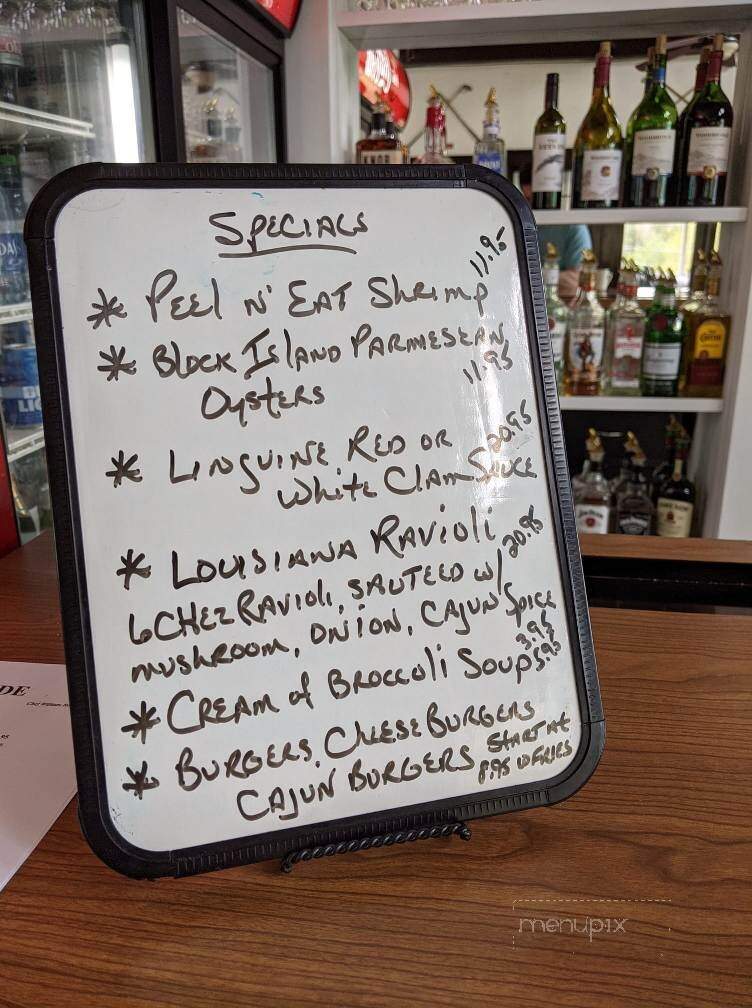 SPECIALS
* PEEL N' EAT SHRIMP 11.95
* BLOCK ISLAND PARMESEAN
OYSTERS 11.95
* LINGUINE RED OR 20.95
WHITE CLAM SAUCE
* LOUISIANA RAVIOLI 20.95
6 CHEZ RAVIOLI, SAUTEED W/
MUSHROOM, ONION, CAJUN SPICE
* CREAM of BROCCOLI SOUP 3.95
5.95
* BURGERS, CHEESE BURGERS
CAJUN BURGERS START AT
8.95 W FRIES
DE
menupix